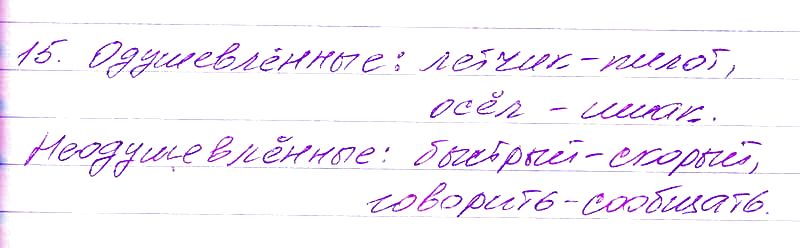 15. Одушевлённые: летчик-пилот,
осёл - ишак.
Неодушевлённые: быстрый-скорый,
говорить-сообщать.